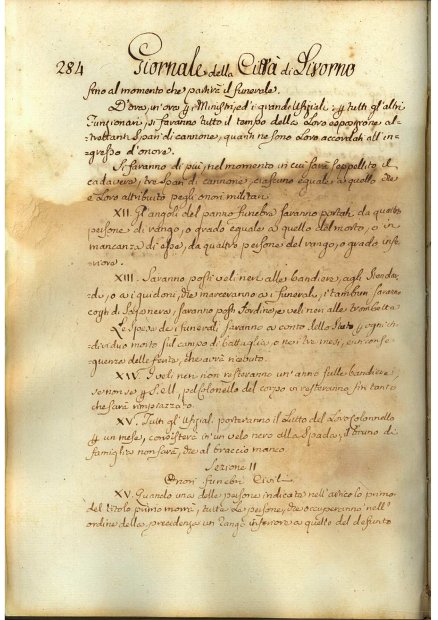 284 Giornale della Città di Livorno
fino al momento che partirà il funerale.
D'ora, in ora p i Ministri, ed i grandi Ufiziali; p tutti gl'altri
Funzionari, si faranno tutto il tempo della Loro esposizione al-
trettanti Spari di cannone, quanti ne sono Loro accordati all'in-
gresso d'onore.
Si faranno di più, nel momento in cui sarà seppellito il
cadavere, tre Spari di cannone, ciascuno eguale a quello che
è Loro attribuito pegli onori militari.
XII. Gl'angoli del panno funebre saranno portati da quattro
persone di rango, o grado eguale a quello del morto, o in
mancanza di esse, da quattro persone del rango, o grado infe-
riore.
XIII. Saranno posti veli neri alle bandiere, agli Stendar-
di, o ai guidoni, che marceranno ai funerali, i tamburi saranno
di nero, saranno posti Sordini, e veli neri alle trombette
Le Spese dei funerali saranno a conto dello Stato p ogni in-
dividuo morto sul campo di battaglia, o nei tre mesi, e in conse-
guenza delle ferite, che avrà ricevuto.
XIV. I veli neri non resteranno un'anno sulle bandiere
se non p S. E. Il, pel Colonello del corpo vi resteranno fin tanto
che sarà rimpiazzato.
XV. Tutti gl'Ufiziali porteranno il Lutto del Loro colonnello
p un mese, consisterà in un velo nero alla Spada, il bruno di
famiglia non sarà, che al braccio manco.
Sezione II
Onori funebri Civili
XV. Quando una delle persone indicate nell'articolo primo
del titolo primo morrà, tutte le persone, che occuperanno nell'
ordine della precedenza un Rango inferiore a quello del defunto